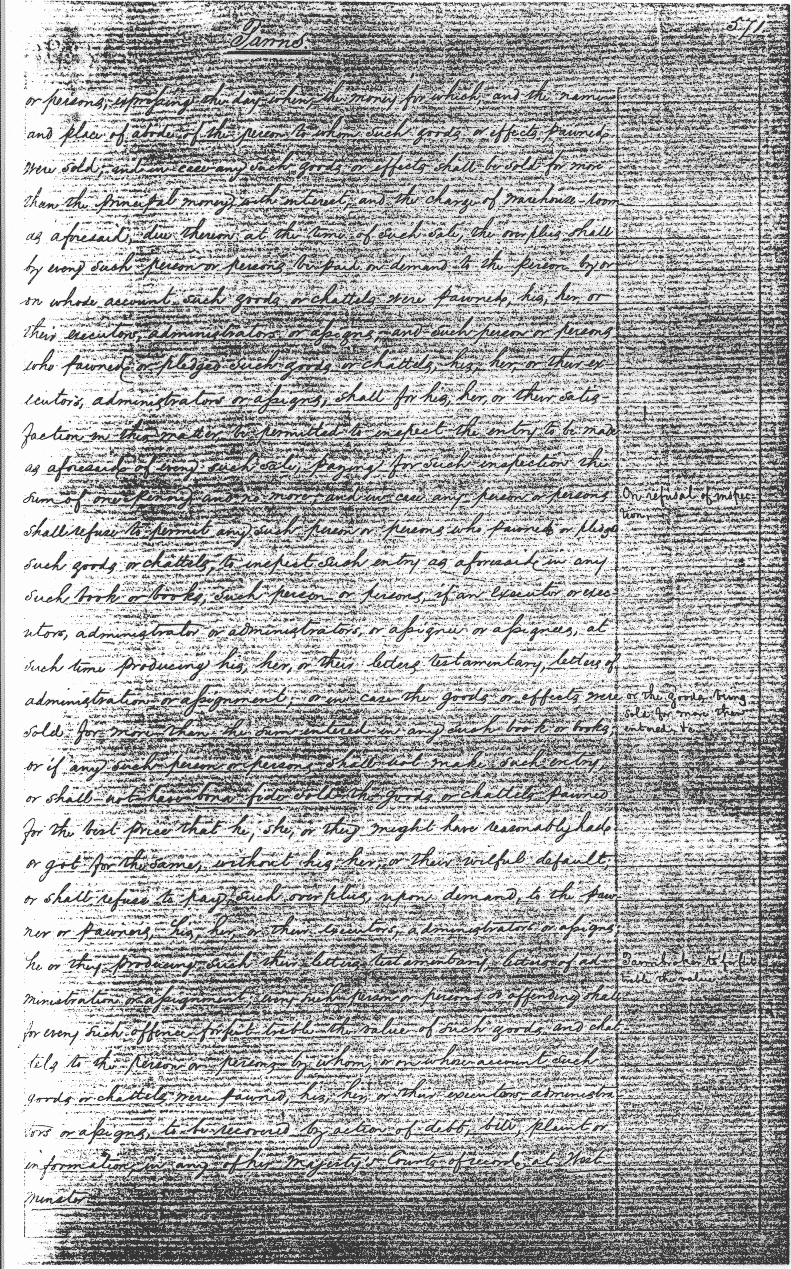 Pawns.
571.
or persons, expressing the day when, the money for which, and the name
and place of abode of the person to whom such goods or effects pawned
were sold; and in case any such goods or effects shall be sold for more
than the principal money with interest, and the charge of warehouse-room
as aforesaid, due thereon at the time of such sale, the overplus shall
by every such person or persons be paid on demand to the person by or
on whose account such goods or chattels were pawned, his, her, or
their executors, administrators or assigns, and such person or persons
who pawned or pledged such goods or chattels, his, her, or their ex-
ecutors, administrators or assigns, shall for his, her, or their satis-
faction in this matter be permitted to inspect the entry to be made
as aforesaid of every such sale, paying for such inspection the
sum of one penny and no more; and in case any person or persons
On refusal of inspec-
tion
shall refuse to permit any such person or persons who pawned or pledged
such goods or chattels, to inspect such entry as aforesaid in any
such book or books, such person or persons, if an executor or exec-
utors, administrator or administrators, or assignee or assignees, at
such time producing his, her, or their letters testamentary, letters of
administration or assignment; or in case the goods or effects were
or the goods being
sold for more than
entered, &c.
sold for more than the sum entered in any such book or books,
or if any such person or persons shall not make such entry,
or shall not have bona fide sold the goods or chattels pawned
for the best price that he, she, or they might have reasonably had
or got for the same, without his, her, or their wilful default,
or shall refuse to pay such overplus, upon demand, to the paw-
ner or pawners, his, her, or their executors, administrators or assigns,
he or they producing such their letters testamentary, letters of ad-
Pawnbroker to forfeit
treble the value
ministration or assignment, every such person or persons so offending shall
for every such offence forfeit treble the value of such goods and chat
tels to the person or persons by whom, or on whose account such
goods or chattels were pawned, his, her, or their executors, administra
tors or assigns, to be recovered by action of debt, bill, plaint or
information, in any of her Majesty's Courts of record, at West
minster.